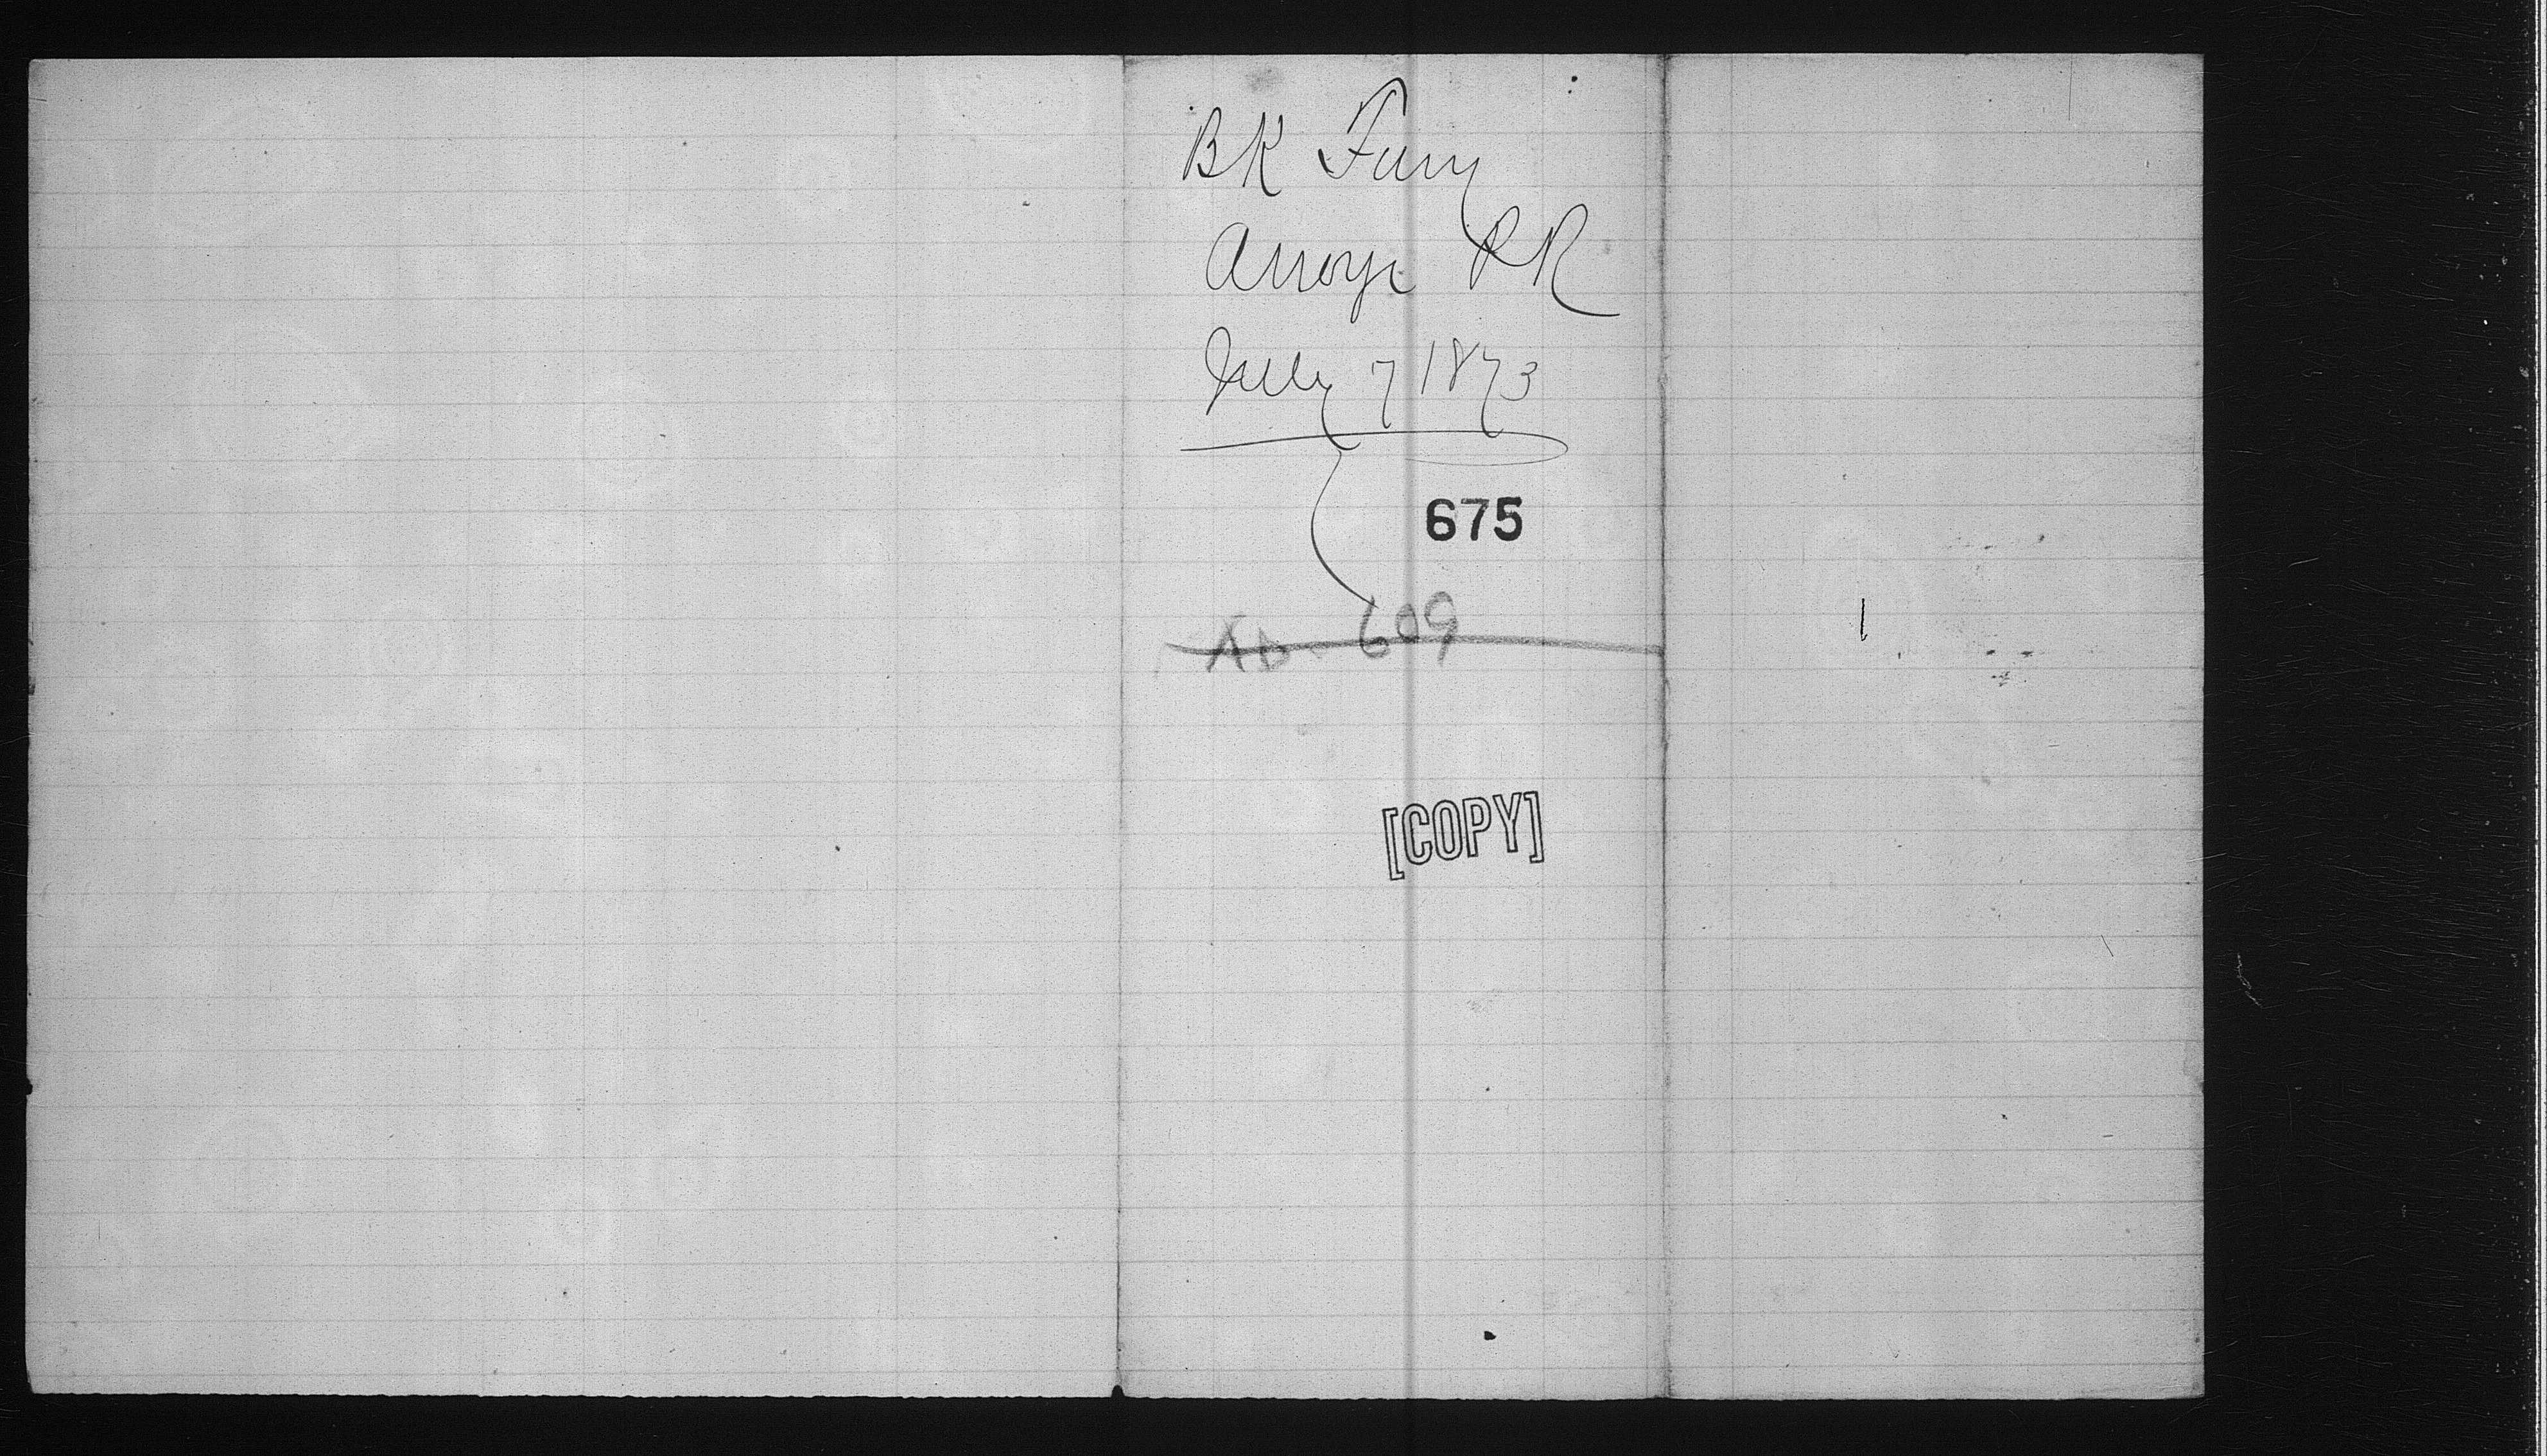 BK Fury
Arroyo PR
July 7 1873
675
AD. 609
[COPY]